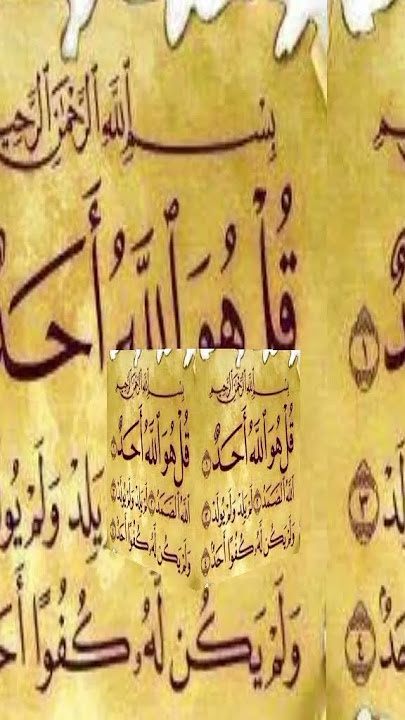 بِسْمِ ٱللَّهِ ٱلرَّحْمَٰنِ ٱلرَّحِيمِ
قُلْ هُوَ ٱللَّهُ أَحَدٌ
١
يَلِدْ وَلَمْ يُو
٣
وَلَمْ يَكُن لَّهُۥ كُفُوًا أَحَ
حَدٌ ٤
بِسْمِ ٱللَّهِ ٱلرَّحْمَٰنِ ٱلرَّحِيمِ
قُلْ هُوَ ٱللَّهُ أَحَدٌ ١
ٱللَّهُ ٱلصَّمَدُ ٢ لَمْ يَلِدْ وَلَمْ يُولَدْ ٣
وَلَمْ يَكُن لَّهُۥ كُفُوًا أَحَدٌ ٤
بِسْمِ ٱللَّهِ ٱلرَّحْمَٰنِ ٱلرَّحِيمِ
قُلْ هُوَ ٱللَّهُ أَحَدٌ ١
ٱللَّهُ ٱلصَّمَدُ ٢ لَمْ يَلِدْ وَلَمْ يُولَدْ ٣
وَلَمْ يَكُن لَّهُۥ كُفُوًا أَحَدٌ ٤